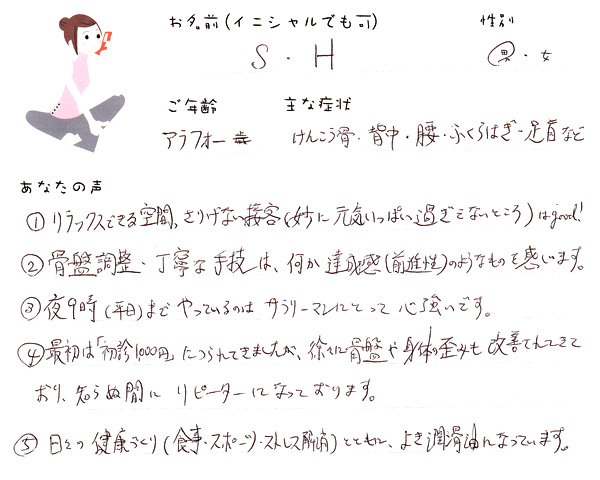 お名前(イニシャルでも可) 性別
S・H 男・女
ご年齢 主な症状
アラフォー 歳 けんこう骨・背中・腰・ふくらはぎ・足首など
あなたの声
① リラックスできる空間、さりげない接客(妙に元気いっぱい過ぎてないところ)はgood!
② 骨盤調整・丁寧な手技は、何か達成感(前進性)のようなものを感じます。
③ 夜9時(平日)までやっているのはサラリーマンにとって心強いです。
④ 最初は「初診1000円」につられてきましたが、徐々に骨盤や身体の歪みも改善されてきて
おり、知らぬ間にリピーターになっております。
⑤ 日々の健康づくり(食事・スポーツ・ストレス解消)とともに、よき潤滑油になっています。